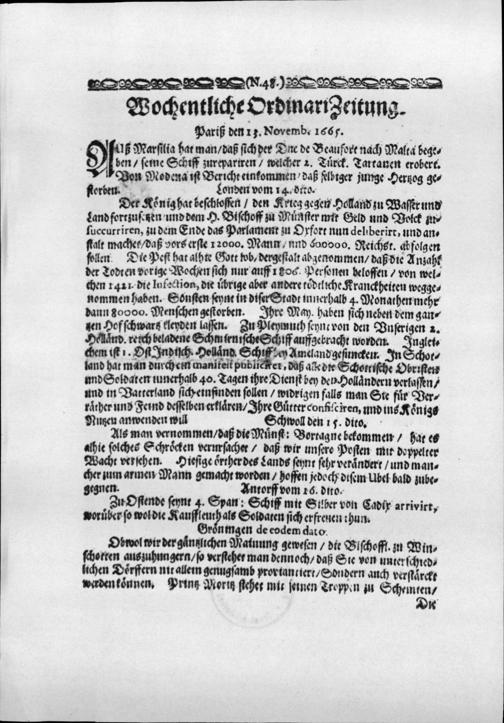 (N.48.)
Wochentliche Ordinari Zeitung.
Pariß den 13. Novemb. 1665.
Auß Marsilia hat man / daß sich der Duc de Beaufort nach Malta bege-
ben / seine Schiff zu repariren / welcher 2. Türck. Tartanen erobert.
Von Modena ist Bericht einkommen / daß selbiger junge Hertzog ge-
storben. Londen vom 14. dito.
Der König hat beschlossen / den Krieg gegen Holland zu Wasser und
Land fortzusetzen und dem H. Bischoff zu Münster mit Geld und Volck zu
succurriren, zu dem Ende das Parlament zu Oxfort nun deliberirt, und an-
stalt machet / daß vors erste 12000. Mann / und 600000. Reichst. abfolgen
sollen. Die Pest hat alhie Gott lob / dergestalt abgenommen / daß die Anzahl
der Todten vorige Wochen sich nur auff 1806. Personen beloffen / von wel-
chen 1421. die Infection, die übrige aber andere tödtliche Kranckheiten wegge-
nommen haben. Sonsten seynt in diser Stadt innerhalb 4. Monathen mehr
dann 80000. Menschen gestorben. Ihre May. haben sich neben dem gan-
tzen Hof schwartz kleyden lassen. Zu Pleymuth seynt von den Unserigen 2.
Holländ. reich beladene Schmirnische Schiff auffgebracht worden. Inglei-
chem ist 1. Ost Indisch. Holländ. Schiff bey Ameland gesuncken. In Schot-
land hat man durch ein manifest publiciret, daß alle die Schottische Obristen
und Soldaten innerhalb 40. Tagen ihre Dienst bey den Holländern verlassen /
und in Vatterland sich einfinden sollen / widrigen falls man Sie für Ver-
räther und Feind desselben erklären / Ihre Gütter confisciren, und ins Königs
Nutzen anwenden will Schwoll den 15. dito.
Als man vernommen / daß die Münst: Vortagne bekommen / hat es
alhie solches Schröcken verursachet / daß wir unsere Posten mit doppelter
Wacht versehen. Hiesige örther des Lands seynt sehr verändert / und man-
cher zum armen Mann gemacht worden / hoffen jedoch disem Ubel bald zube-
gegnen. Antorff vom 16. dito.
Zu Ostende seynt 4. Span: Schiff mit Silber von Cadix arrivirt,
worüber so wol die Kauffleuth als Soldaten sich erfreuen thun.
Gröningen de eodem dato.
Obwol wir der gäntzlichen Mainung gewesen / die Bischoffl. zu Win-
schotten auszuhungern / so verstehet man dennoch / daß Sie von unterschied-
lichen Dörffern nit allein genugsamb proviantiert / Sondern auch verstärckt
werden können. Printz Moritz stehet mit seinen Troppen zu Schemten /
Die